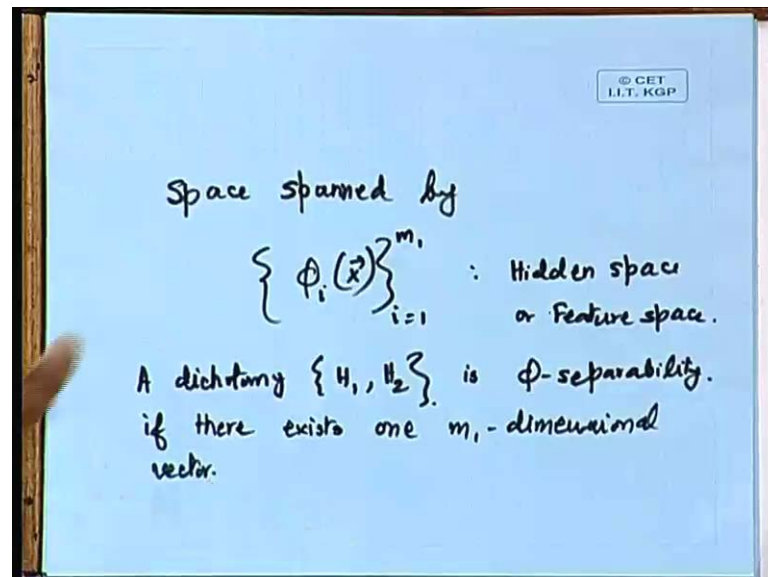 © CET
I.I.T. KGP
Space spanned by
{ φᵢ(x⃗) }ᵢ₌₁^m₁ : Hidden space
or Feature space.
A dichotomy {H₁, H₂} is φ-separability.
if there exists one m₁-dimensional
vector.